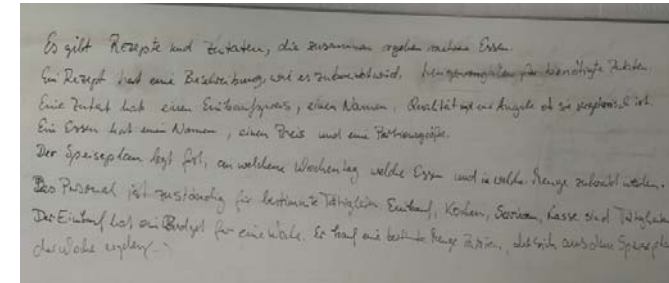 Es gibt Rezepte und Zutaten, die zusammen ergeben mehrere Essen.
Ein Rezept hat eine Beschreibung, wie es zubereitet wird, Mengenangaben für benötigte Zutaten.
Eine Zutat hat einen Einkaufspreis, einen Namen, Qualität und eine Angabe ob sie vegetarisch ist.
Ein Essen hat einen Namen, einen Preis und eine Portionsgröße.
Der Speiseplan legt fest, an welchem Wochentag welche Essen und in welcher Menge zubereitet werden.
Das Personal ist zuständig für bestimmte Tätigkeiten. Einkauf, Kochen, Servieren, Kasse sind Tätigkeiten
Der Einkauf hat ein Budget für eine Woche. Er kauf eine bestimmte Menge Zutaten, die sich aus dem Speisepla
der Woche ergeben.